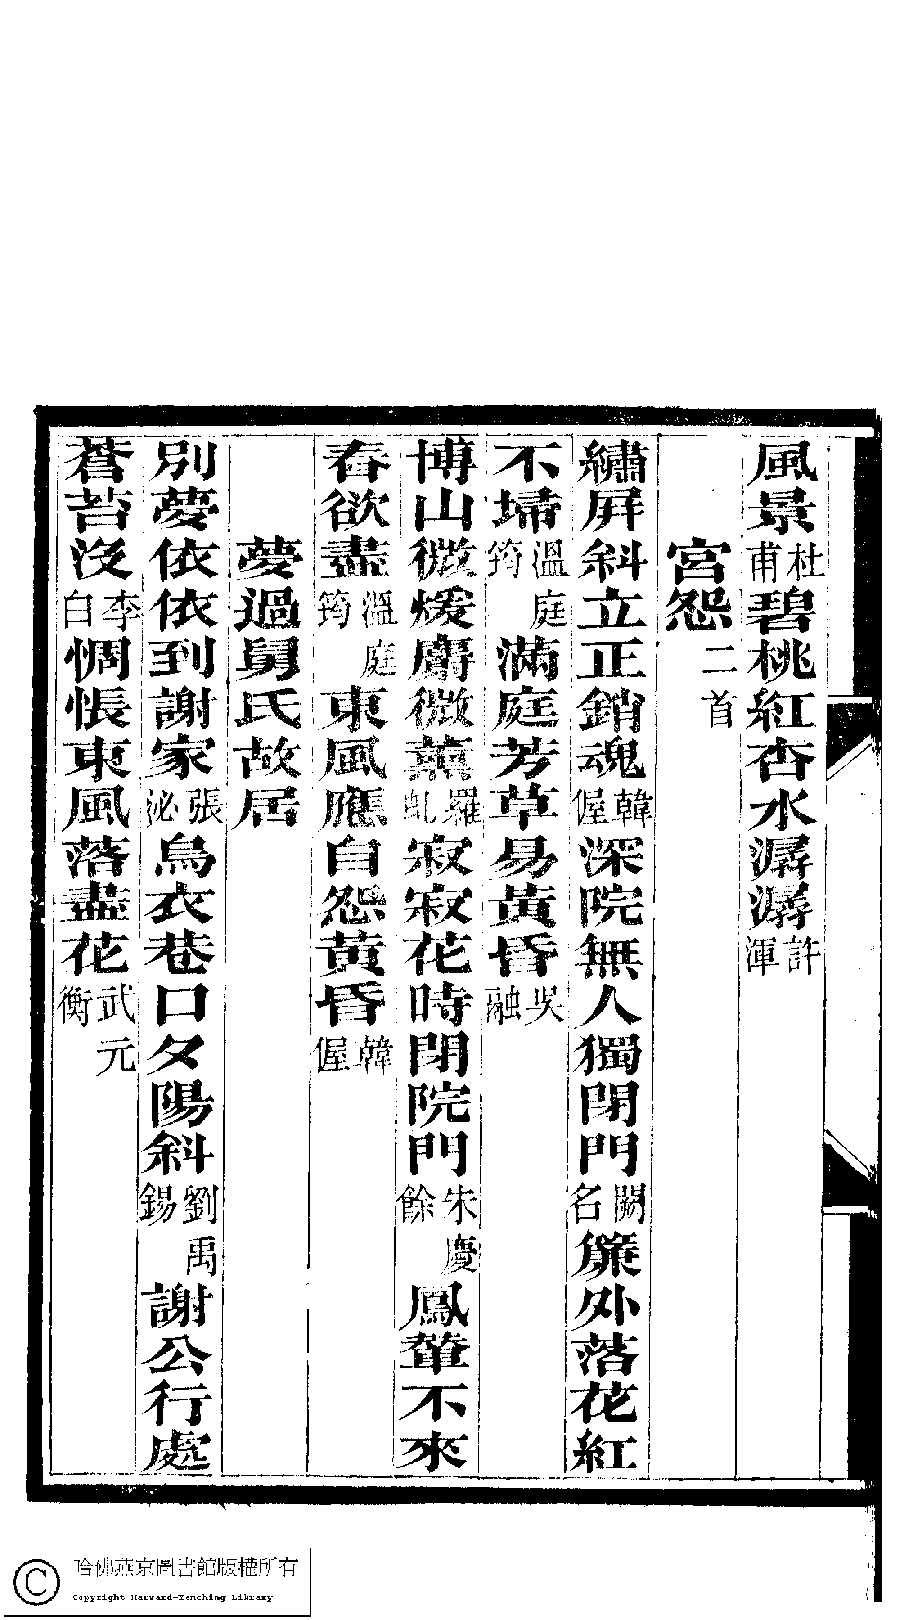 風景杜甫碧桃紅杏水潺潺許渾
宮怨二首
繡屏斜立正銷魂韓偓深院無人獨閉門闕名簾外落花紅
不埽溫庭筠滿庭芳草易黃昏吳融
博山微煖麝微薰羅虬寂寂花時閉院門朱慶餘鳳輦不來
春欲盡溫庭筠東風應自怨黃昏韓偓
夢過舅氏故居
別夢依依到謝家張泌烏衣巷口夕陽斜劉禹錫謝公行處
蒼苔沒李白惆悵東風落盡花武元衡
哈佛燕京圖書館版權所有
Copyright Harvard-Yenching Library